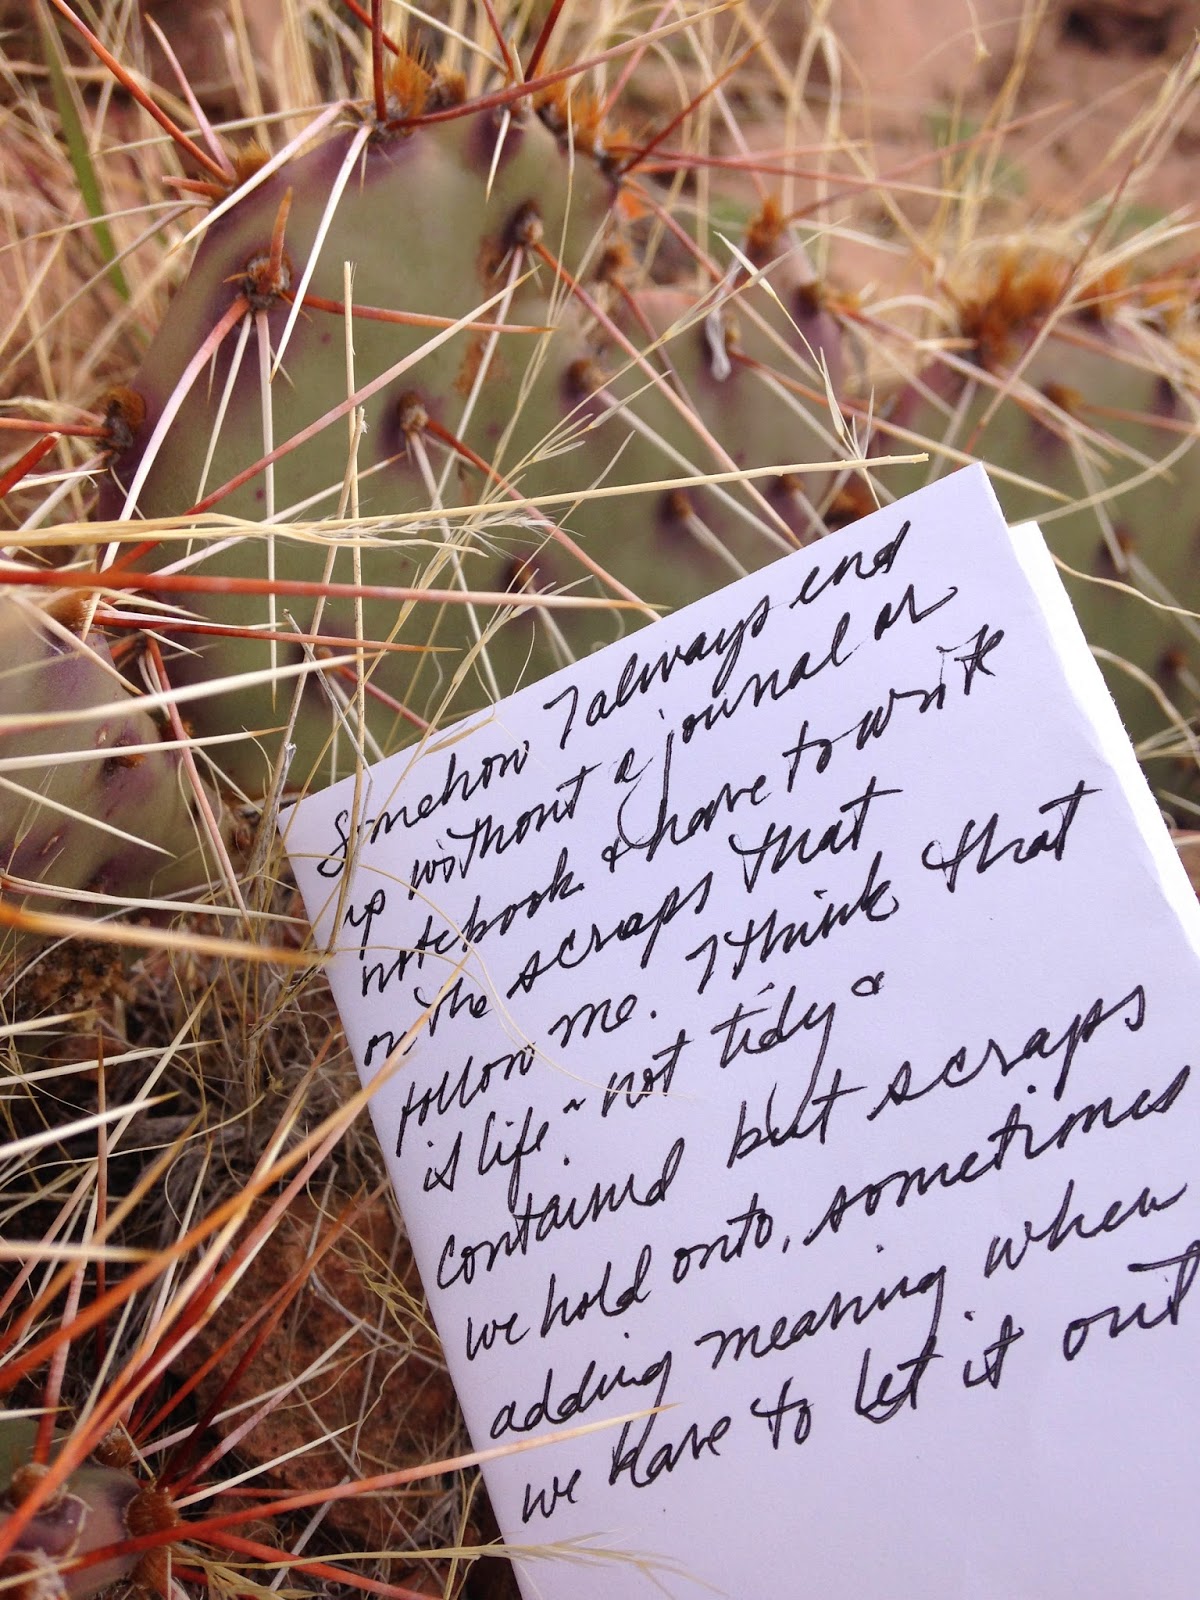 Somehow I always end
up without a journal or
notebook & have to write
on the scraps that
follow me. I think that
is life ~ not tidy &
contained but scraps
we hold onto, sometimes
adding meaning when
we have to let it out